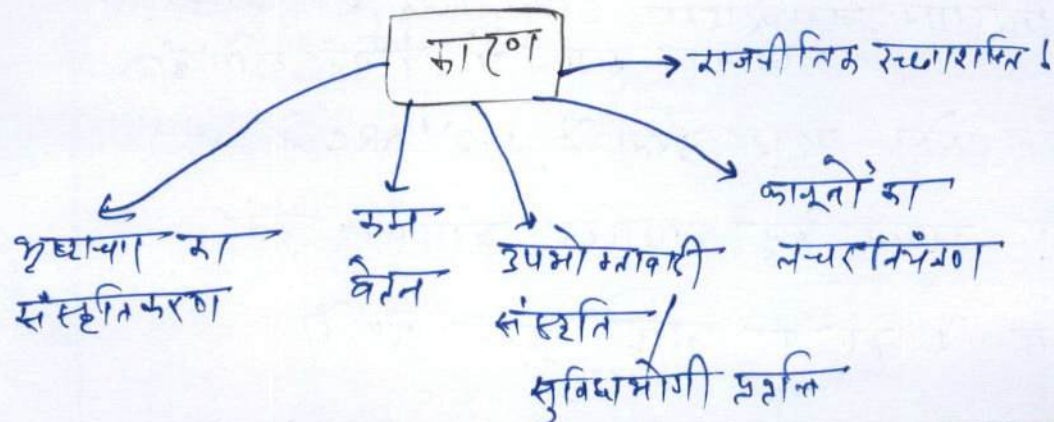 कारण
राजनीतिक इच्छाशक्ति ↓
भ्रष्टाचार का
संस्कृतिकरण
कम
वेतन
उपभोक्तावादी
संस्कृति /
सुविधाभोगी प्रवृत्ति
कानूनों का
लचर नियंत्रण